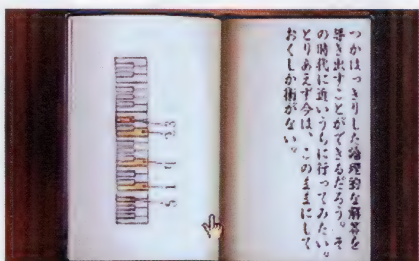 つかはっきりした論理的な解答を
導き出すことができるだろう。そ
の時代に近いうちに行ってみたい。
とりあえず今は、このままにして
おくしか術がない。
5 1 7 23